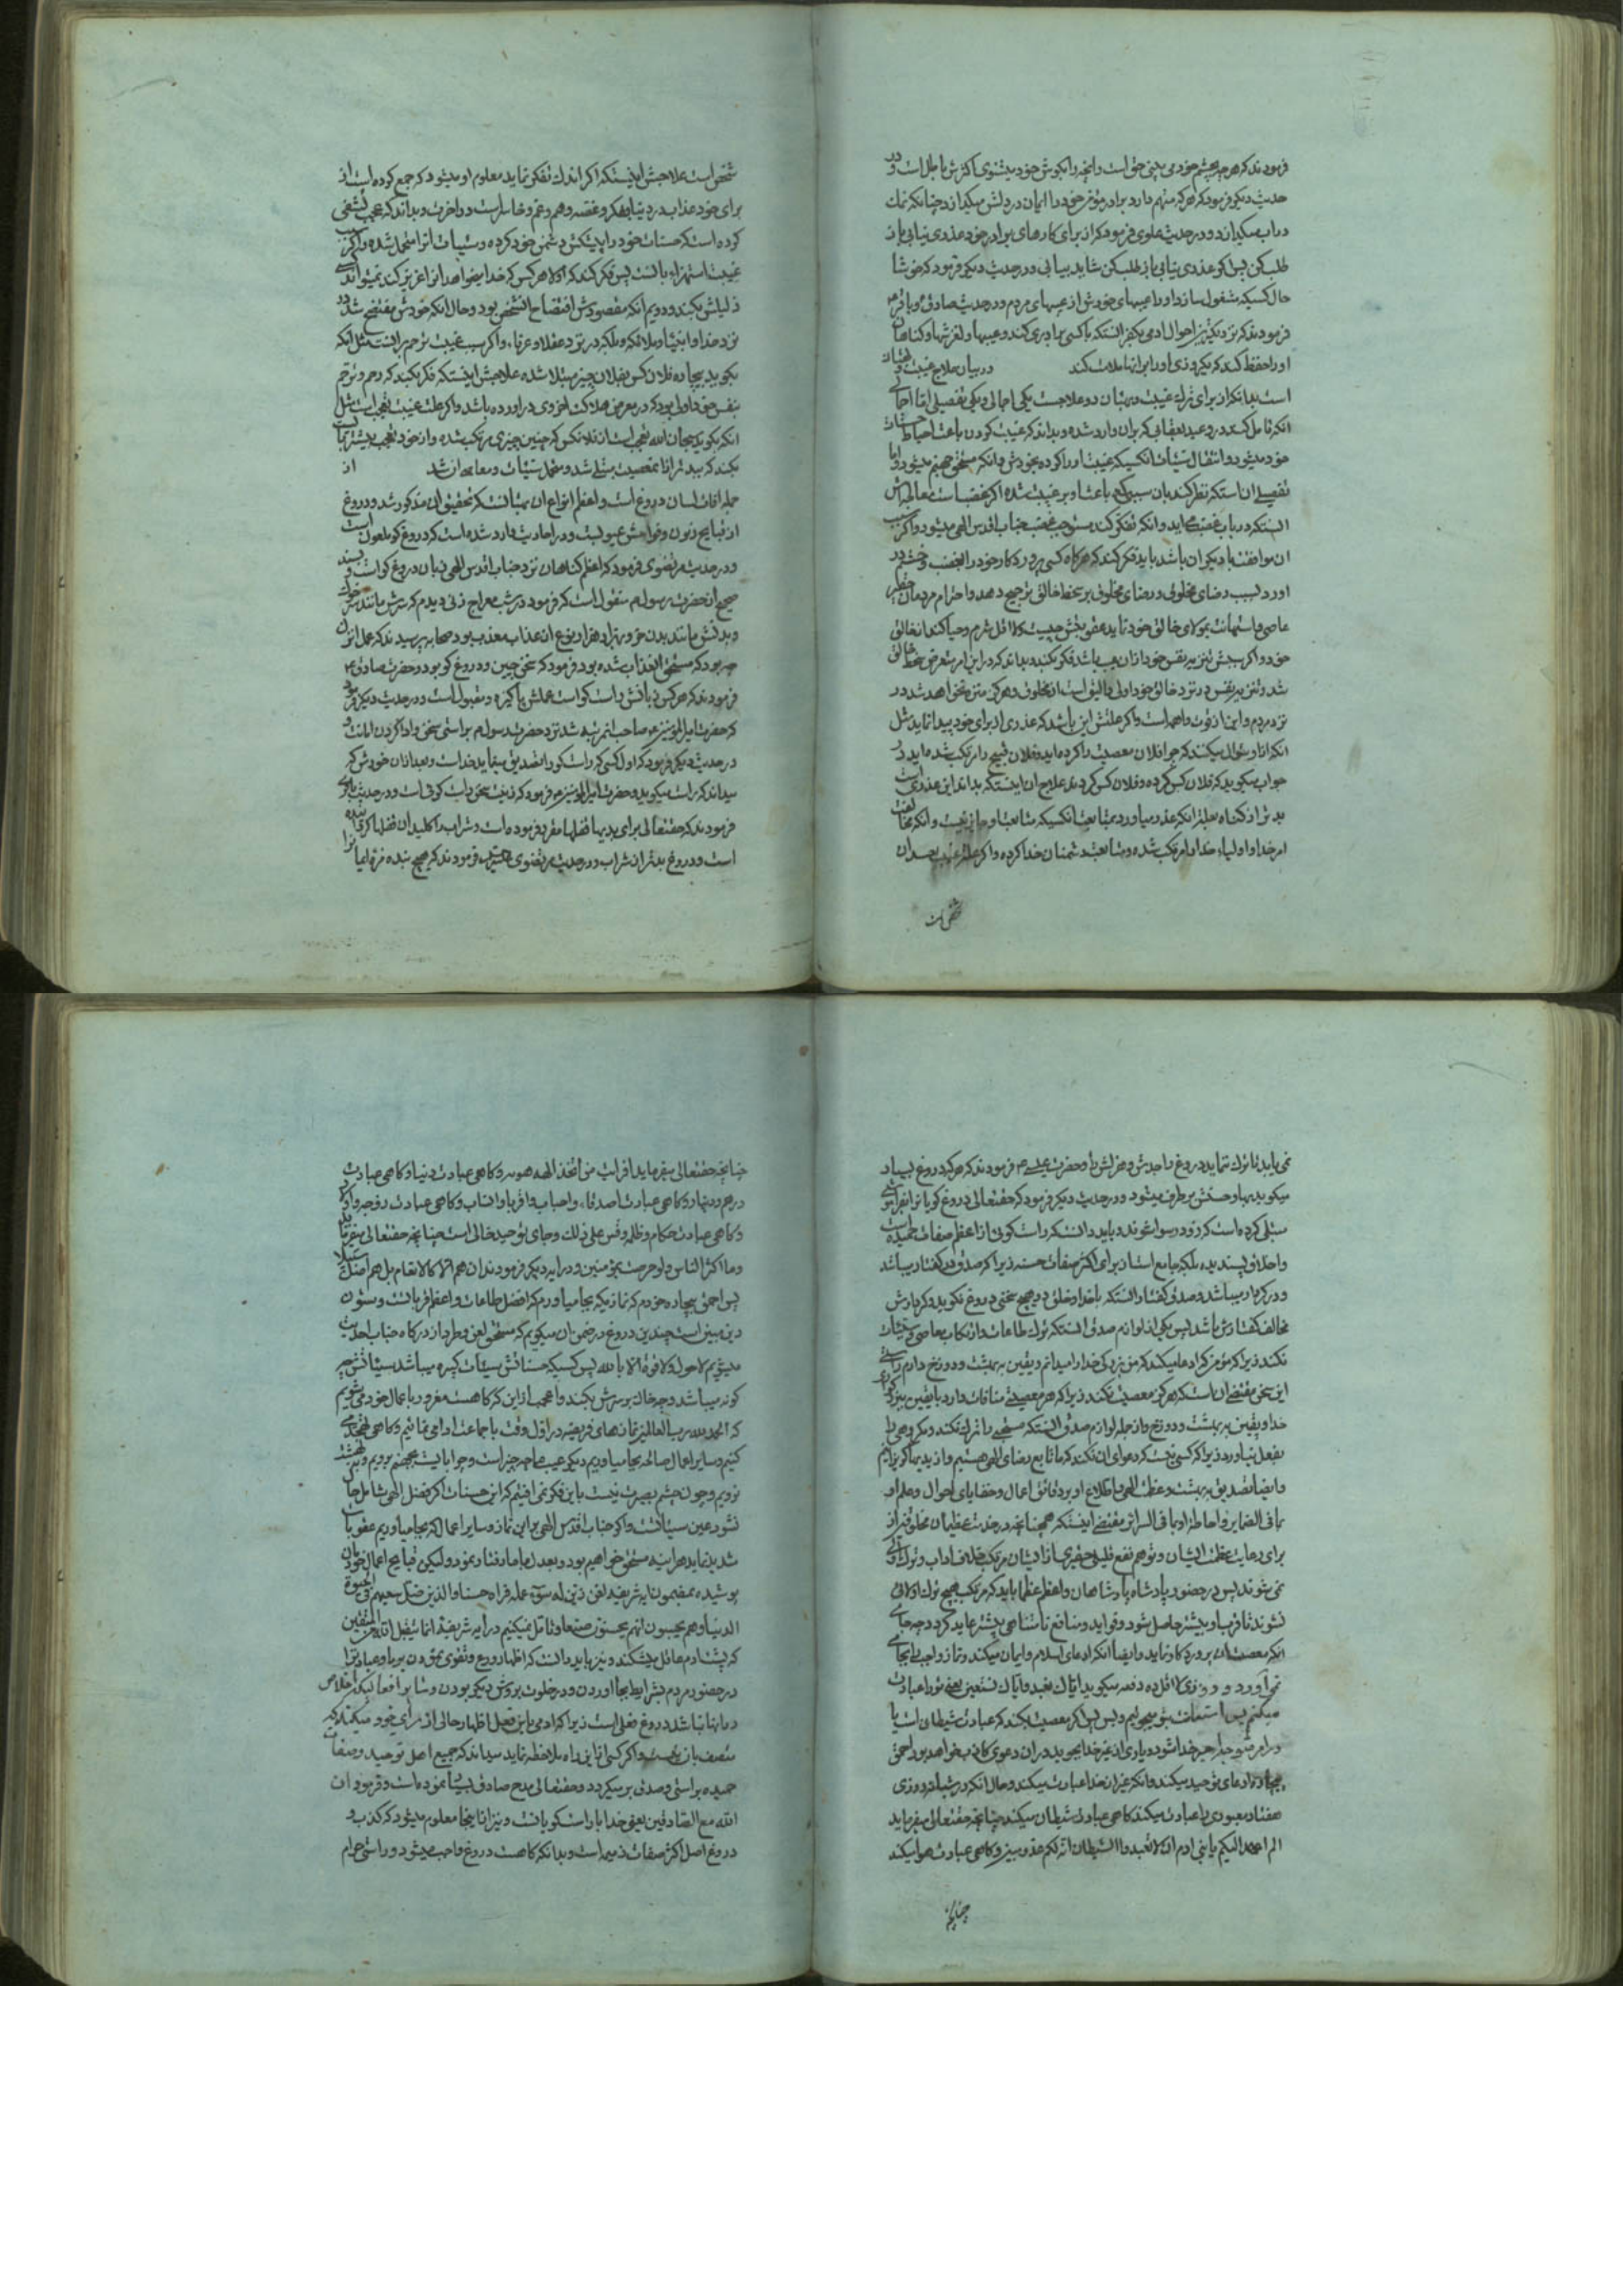 فرمودند که هر چه بچشم خود می بینی حق است و انچه را بکوش خود میشنوی اکثرش باطل است و در
حدیث دیکر فرمود که هر که متهم دارد برادر مؤمن خود را ایمان در دلش میکدازد چنانکه نمک
در اب میکدازد و در حدیث علوی فرمود که از برای کارهای برادر خود عذری بیابی باز
طلب کن پس اکر عذری نیابی باز طلب کن شاید بیابی و در حدیث دیکر فرمود که خوشا
حال کسیکه مشغول سازد او را عیبهای خودش از عیبهای مردم و در حدیث صادق و باقر
فرمودند که نزدیکترین احوال ادمی بکفر انستکه با کسی برادری کند و عیبها و لغزشها و کناهان
او را حفظ کند که یکروزی او را برانها ملامت کند در بیان علاج غیبت و بهتان
است بدانکه از برای ترک غیبت و بهتان دو علاجست یکی اجمالی و یکی تفصیلی اما اجمالی
انکه تامل کند در وعید بعقابی که بران وارد شده و بداند که غیبت کردن باعث احباط حسنات
خود میشود و انتقال سیئات انکسیکه غیبت او را کرده بخودش و انکه مستحق جهنم میشود و اما
تفصیلی ان استکه نظر کند بان سببی که باعث او بر غیبت شده اکر غضب است معالجه اش
انستکه در باب غضب می اید و انکه تفکر کند مستوجب غضب جناب اقدس الهی میشود و اکر سبب
ان موافقت با دیکران باشد باید فکر کند که هرکاه کسی پروردکار خود را بغضب و خشم در
اورد بسبب رضای مخلوقی و رضای مخلوق بر سخط خالق ترجیح دهد و احترام مردمان
عاصی و استهانت بمولای خالق خود نماید عقوبتش چیست کلا اقل شرم و حیا کند از خالق
خود و اکر سببش تنزیه نفس خود ازان عیب باشد فکر نکند و بداند که در این امر متعرض سخط خالق
شد و تنزیه نفس در نزد خالق خود اولی و الیق است از مخلوق و هرکز منزه نخواهد شد در
نزد مردم و این از قوت واهمه است و اکر علتش این باشد که عذری از برای خود پیدا نماید مثل
انکه از او سؤال میکنند که چرا فلان معصیت را کرده اید و فلان قبیح را مرتکب شده اید در
جواب میکوید که فلان کس کرده و فلان کس کردند علاج ان اینستکه بداند این عذری است
بدتر از کناه بعلت انکه عذر میاورد بمتابعت انکسیکه متابعت او جایز نیست و انکه مخالفت
امر خدا و اولیاء خدا را مرتکب شده و متابعت دشمنان خدا کرده و اکر علت غیبت حسد ان
شخص است
شخص است علاجش اینستکه اکر اندک تفکر نماید معلوم او میشود که جمع کرده است از
برای خود عذاب در دنیا بفکر و غصه و هم و غم و خاسر است در اخرت و بداند که عجب لشخصی
کرده است که حسنات خود را پیشکش دشمن خود کرده و سیئات انرا متحمل شده و اکر سبب
غیبت استهزاء بانست پس فکر کند که اولا هر کس که خدا میخواهد انرا عزیز کند نمیتواند کسی
ذلیلش بکند و دویم انکه مقصودش افتضاح انشخص بود و حال انکه خودش مفتضح شد در
نزد خدا و انبیا و ملائکه و بلکه در نزد عقلا و عرفا، و اکر سبب غیبت ترحم برانست مثل انکه
بکوید بیچاره فلان کس بفلان چیز مبتلا شده علاجش اینستکه فکر بکند که رحم و ترحم
بنفس خود اولی بود که در معرض هلاکت اخروی در اورده باشد و اکر علت غیبت تعجب است مثل
انکه بکوید سبحان الله تعجب است از فلانکس که چنین چیزی مرتکب شده و از خود تعجب بیشتر باید
بکند که بیدتر ازان معصیت مبتلی شد و متحمل سیئات و معایب ان شد از
جمله افات لسان دروغ است و اعظم انواع ان بهتانستکه تحقیق ان مذکور شد و دروغ
از قبایح ذنوب و فواحش عیوبست و در احادیث وارد شده است که دروغ کو ملعون است
و در حدیث مرتضوی فرمود که اعظم کناهان نزد جناب اقدس الهی زبان دروغ کو است و بسند
صحیح از حضرت رسول ص منقول است که فرمود در شب معراج زنی دیدم که سرش مانند سر خوک
و بدنش مانند بدن خر و بهزار هزار نوع ان عذاب معذب بود صحابه پرسیدند که عمل ان زن
چه بود که مستحق العذاب شده بود فرمود که سخن چین و دروغ کو بود و حضرت صادق ع
فرمودند که هر کس زبانش راست کو است عملش پاکیزه و مقبول است و در حدیث دیکر فرمود
که حضرت امیر المؤمنین ع صاحب انمرتبه شد نزد حضرت رسول ص براستی سخن و ادا کردن امانت و
در حدیث دیکر فرمود که اول کسی که راست کو را تصدیق مینماید خداست و بعد ازان خودش که
میداند که راست میکوید و حضرت امیر المؤمنین ع فرمود که زینت سخن راست کوئی است و در حدیث باقری
فرمودند که حقتعالی برای بدیها قفلها مقرر فرموده است و شراب را کلید ان قفلها کردانیده
است و دروغ بدتر از شراب و در حدیث مرتضوی حضرت فرمودند که هیچ بنده مزه ایمان را
نمی یابد تا ترک نماید دروغ را جدش و هزلش را و حضرت عیسی ع فرمودند که هر که دروغ بسیار
میکوید بهاء و حسنش برطرف میشود و در حدیث دیکر فرمود که حقتعالی دروغ کو را بفراموشی
مبتلی کرده است که زود رسوا شود و باید دانستکه راست کوئی از اعظم صفات حمیده است
و اخلاق پسندیده بلکه جامع است از برای اکثر صفات حسنه زیرا که صدق در کفتار میباشد
و در کردار میباشد و صدق کفتار انستکه با خدا و خلق در هیچ سخنی دروغ نکوید و کردارش
مخالف کفتارش نباشد پس یکی از لوازم صدق انستکه ترک طاعات و ارتکاب معاصی و سیئات
نکند زیرا که مؤمن که ادعا میکند که من بزرکی خدا را میدانم و یقین به بهشت و دوزخ دارم راستی
این سخن مقتضی ان است که هرکز معصیت نکند زیرا که هر معصیتی منافات دارد با یقین ببزرکواری
خدا و یقین به بهشت و دوزخ و از جمله لوازم صدق انستکه مستحبی را ترک نکند و مکروهی را
بفعل نیاورد زیرا که کسی نیست که دعوای ان نکند که ما تابع رضای الهی هستیم و از بدیها کریزانیم
و ایضا تصدیق به بهشت و عظمت الهی و اطلاع او بر دقائق اعمال و خفایای احوال و علم او
بما فی الضمایر و احاطه او بما فی السرائر مقتضی اینستکه همچنانچه در خدمت عظیمان مخلوقین از
برای رعایت عظمت ایشان و توهم نفع قلیلی حقیری از ایشان مرتکب خلاف اداب و ترک اولی
نمی شوند پس در حضور پادشاه پادشاهان و اعظم عظما باید که مرتکب هیچ ترک اولائی
نشوند تا قرب او بیشتر حاصل شود و فواید و منافع نامتناهی بیشتر عاید کردد چه جای
انکه معصیت ان پروردکار نماید و ایضا انکه ادعای اسلام و ایمان میکند و نماز واجب را بجا
نمی آورد و روزی لا اقل ده دفعه میکوید ایاک نعبد و ایاک نستعین یعنی تو را عبادت
میکنم پس استعانت بتو میجویم و بس پس اکر معصیت بکند که عبادت شیطان است یا
بیچاره ادعای توحید میکند و انکه غیر از خدا عبادت میکند و حال انکه در شبانه روزی
هفتاد معبود را عبادت میکند کاهی عبادت شیطان میکند چنانچه حقتعالی میفرماید
الم اعهد الیکم یا بنی ادم ان لا تعبدوا الشیطان انه لکم عدو مبین و کاهی عبادت هوا میکند
چنانچه
چنانچه حقتعالی میفرماید افرایت من اتخذ الهه هویه و کاهی عبادت دنیا و کاهی عبادت
درهم و دینار و کاهی عبادت اصدقاء و احباب و اقربا و انساب و کاهی عبادت زوجه و اولاد
و کاهی عبادت حکام و ظلمه و قس علی ذلک و جای توحید خالی است چنانچه حقتعالی میفرماید
وما اکثر الناس ولو حرصت بمؤمنین و در ایه دیکر فرمودند ان هم الا کالانعام بل هم اضل سبیلا
پس احمق بیچاره خودم که نمازیکه بجا میاورم که افضل طاعات و اعظم قربات و ستون
دین مبین است چندین دروغ در ضمن ان میکویم که مستحق لعن و طرد از درکاه جناب احدیت
میشویم لا حول ولا قوة الا بالله پس کسیکه حسناتش سیئات کبیره میباشد سیئاتش چه
کونه میباشد و چه خاک بر سرش بکند و اعجب ازین که کاهست مغرور باعمال خود می شویم
که الحمد لله رب العالمین نمازهای فریضه در اول وقت با جماعت ادا می نمائیم و کاهی تهجد می
کنیم و سایر اعمال صالحه بجا میاوریم دیکر عیب ما چه چیز است و چرا بایست بجهنم برویم و ببهشت
نرویم و چون چشم بصیرت نیست باین فکر نمی افتیم که این حسنات اکر فضل الهی شامل حال
نشود عین سیئاتست و اکر جناب اقدس الهی بر این نماز و سایر اعمال که بجا میاوریم عقوبات
شدید نماید هراینه مستحق خواهیم بود و بعدل با ما رفتار نمود و لیکن قبایح اعمال خودمان
پوشیده بمضمون ایه شریفه افمن زین له سوء عمله فراه حسنا و الذین ضل سعیهم فی الحیوة
الدنیا و هم یحسبون انهم یحسنون صنعا و تامل نمیکنیم در ایه شریفه انما یتقبل الله من المتقین
که پشت ادم عاقل میشکند و نیز باید دانست که اظهار ورع و تقوی نمودن بریا و عبادت را
در حضور مردم بشرایط بجا اوردن و در خلوت بروش دیکر بودن و سایر افعال نیکو که اخلاص
درانها نباشد دروغ فعلی است زیرا که ادمی باین فعل اظهار حالی از برای خود میکند که
متصف بان نیست و اکر کسی ازاین راه ملاحظه نماید میداند که جمیع اصل توحید و صفات
حمیده براستی و صدق بر میکردد و حقتعالی مدح صادقین بسیار نموده است و فرمود ان
الله مع الصادقین یعنی خدا با راستکویانست و نیز ازاینجا معلوم میشود که کذب و
دروغ اصل اکثر صفات ذمیمه است و بدانکه کاهست دروغ واجب میشود و راستی حرام